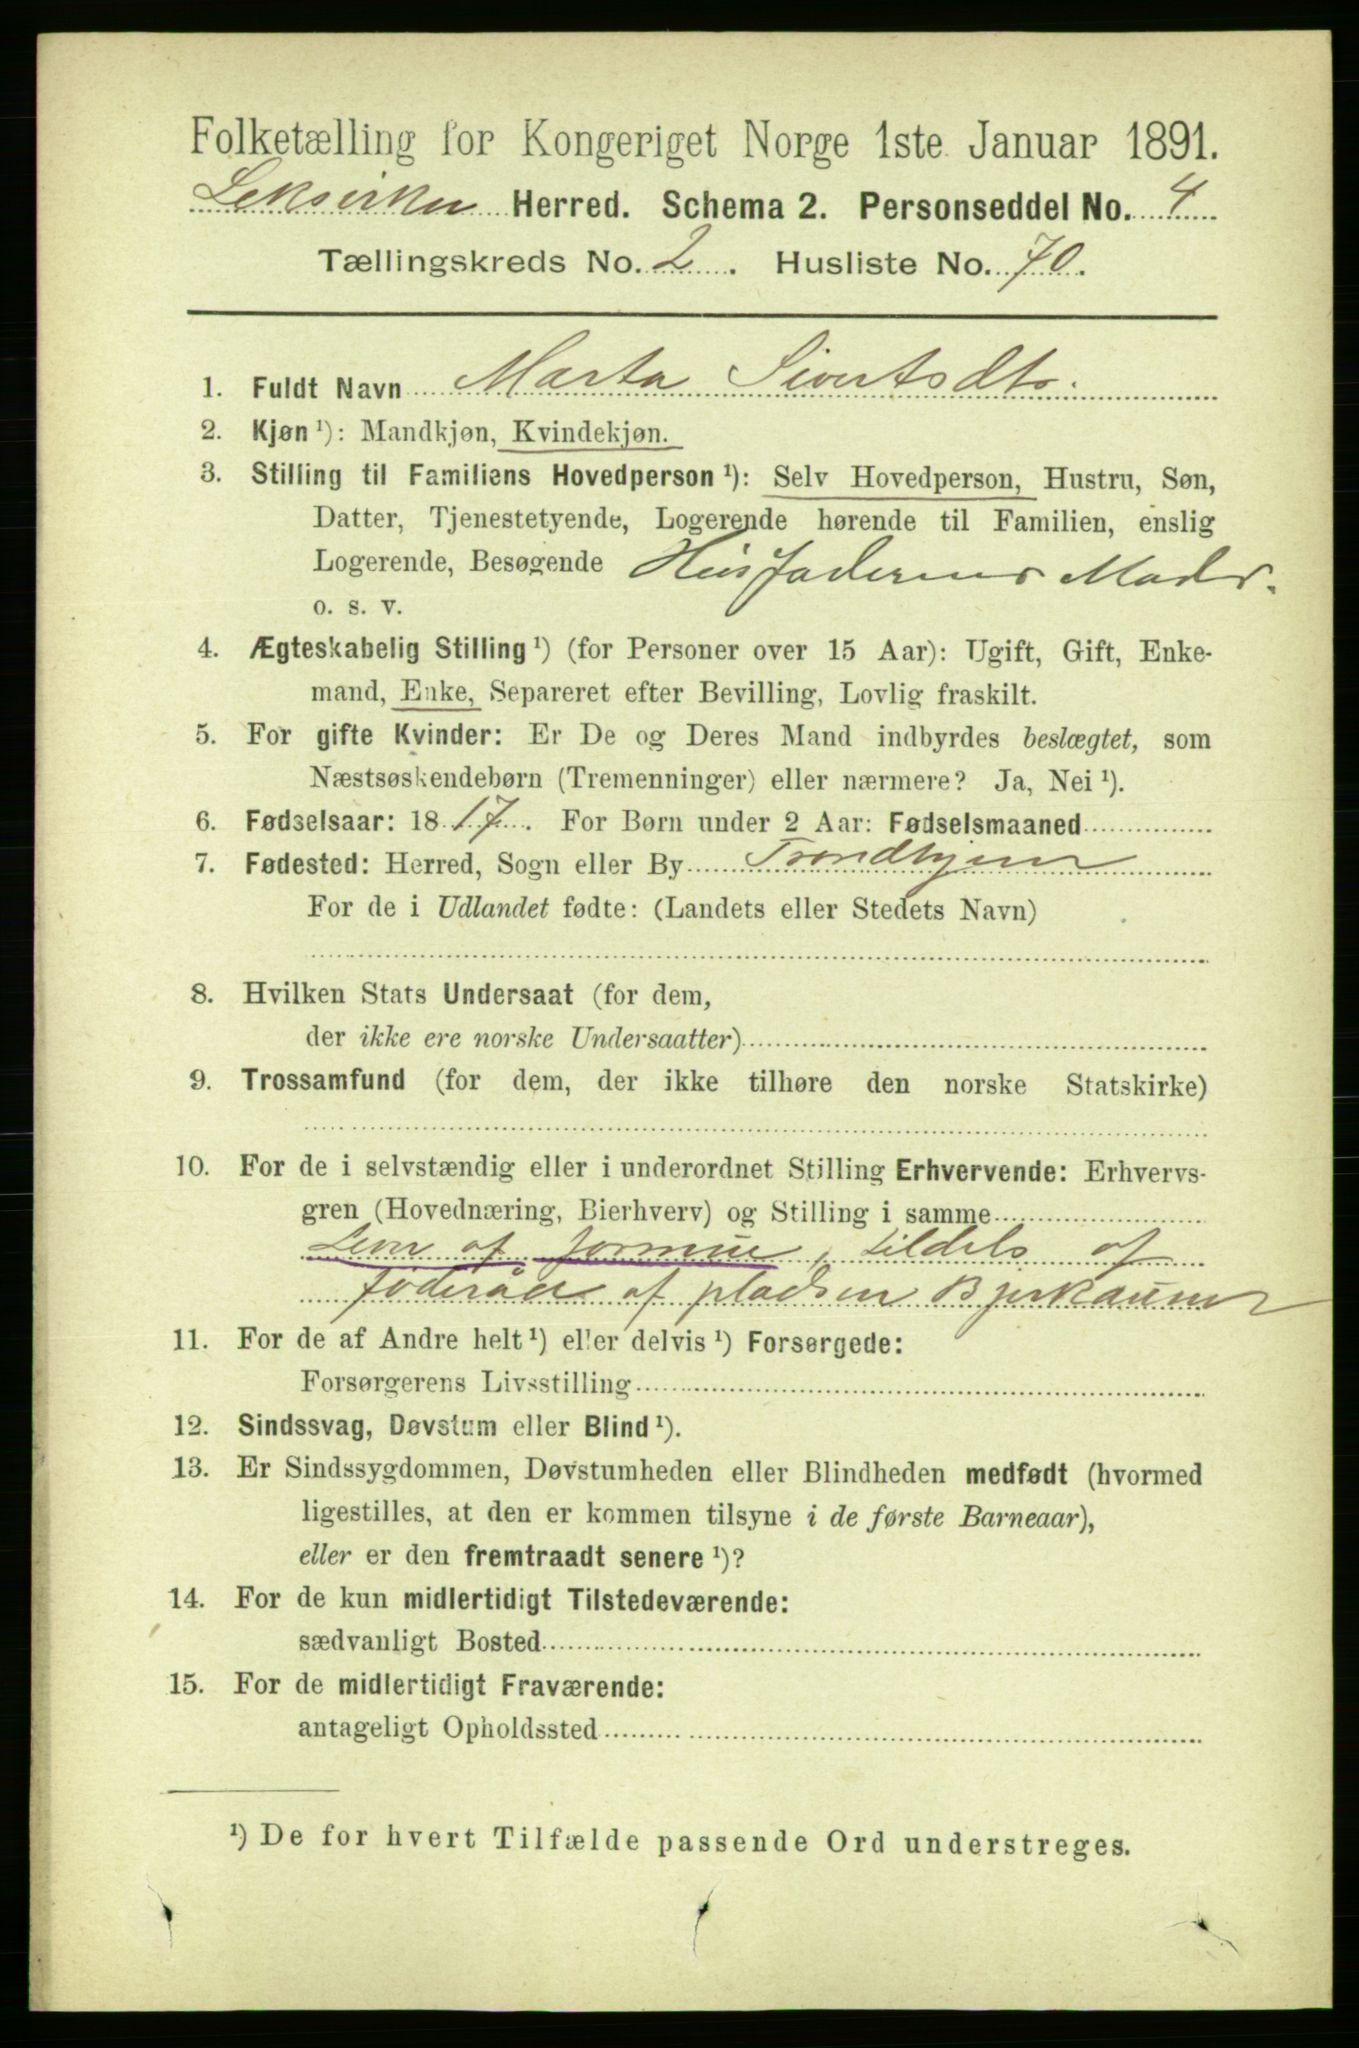 Folketælling for Kongeriget Norge 1ste Januar 1891.
Leksviken Herred. Schema 2. Personseddel No. 4
Tællingskreds No. 2. Husliste No. 70.
1. Fuldt Navn Marta Sivertsdtr.
2. Kjøn ¹): Mandkjøn, Kvindekjøn.
3. Stilling til Familiens Hovedperson ¹): Selv Hovedperson, Hustru, Søn,
Datter, Tjenestetyende, Logerende hørende til Familien, enslig
Logerende, Besøgende Husfaderens Moder.
o. s. v.
4. Ægteskabelig Stilling ¹) (for Personer over 15 Aar): Ugift, Gift, Enke-
mand, Enke, Separeret efter Bevilling, Lovlig fraskilt.
5. For gifte Kvinder: Er De og Deres Mand indbyrdes beslægtet, som
Næstsøskendebørn (Tremenninger) eller nærmere? Ja, Nei ¹).
6. Fødselsaar: 1817. For Børn under 2 Aar: Fødselsmaaned
7. Fødested: Herred, Sogn eller By Trondhjem
For de i Udlandet fødte: (Landets eller Stedets Navn)
8. Hvilken Stats Undersaat (for dem,
der ikke ere norske Undersaatter)
9. Trossamfund (for dem, der ikke tilhøre den norske Statskirke)
10. For de i selvstændig eller i underordnet Stilling Erhvervende: Erhvervs-
gren (Hovednæring, Bierhverv) og Stilling i samme
Lever af formue, tildels af
føderåd af pladsen Bjerkaunet
11. For de af Andre helt ¹) eller delvis ¹) Forsørgede:
Forsørgerens Livsstilling
12. Sindssvag, Døvstum eller Blind ¹).
13. Er Sindssygdommen, Døvstumheden eller Blindheden medfødt (hvormed
ligestilles, at den er kommen tilsyne i de første Barneaar),
eller er den fremtraadt senere ¹)?
14. For de kun midlertidigt Tilstedeværende:
sædvanligt Bosted
15. For de midlertidigt Fraværende:
antageligt Opholdssted
¹) De for hvert Tilfælde passende Ord understreges.